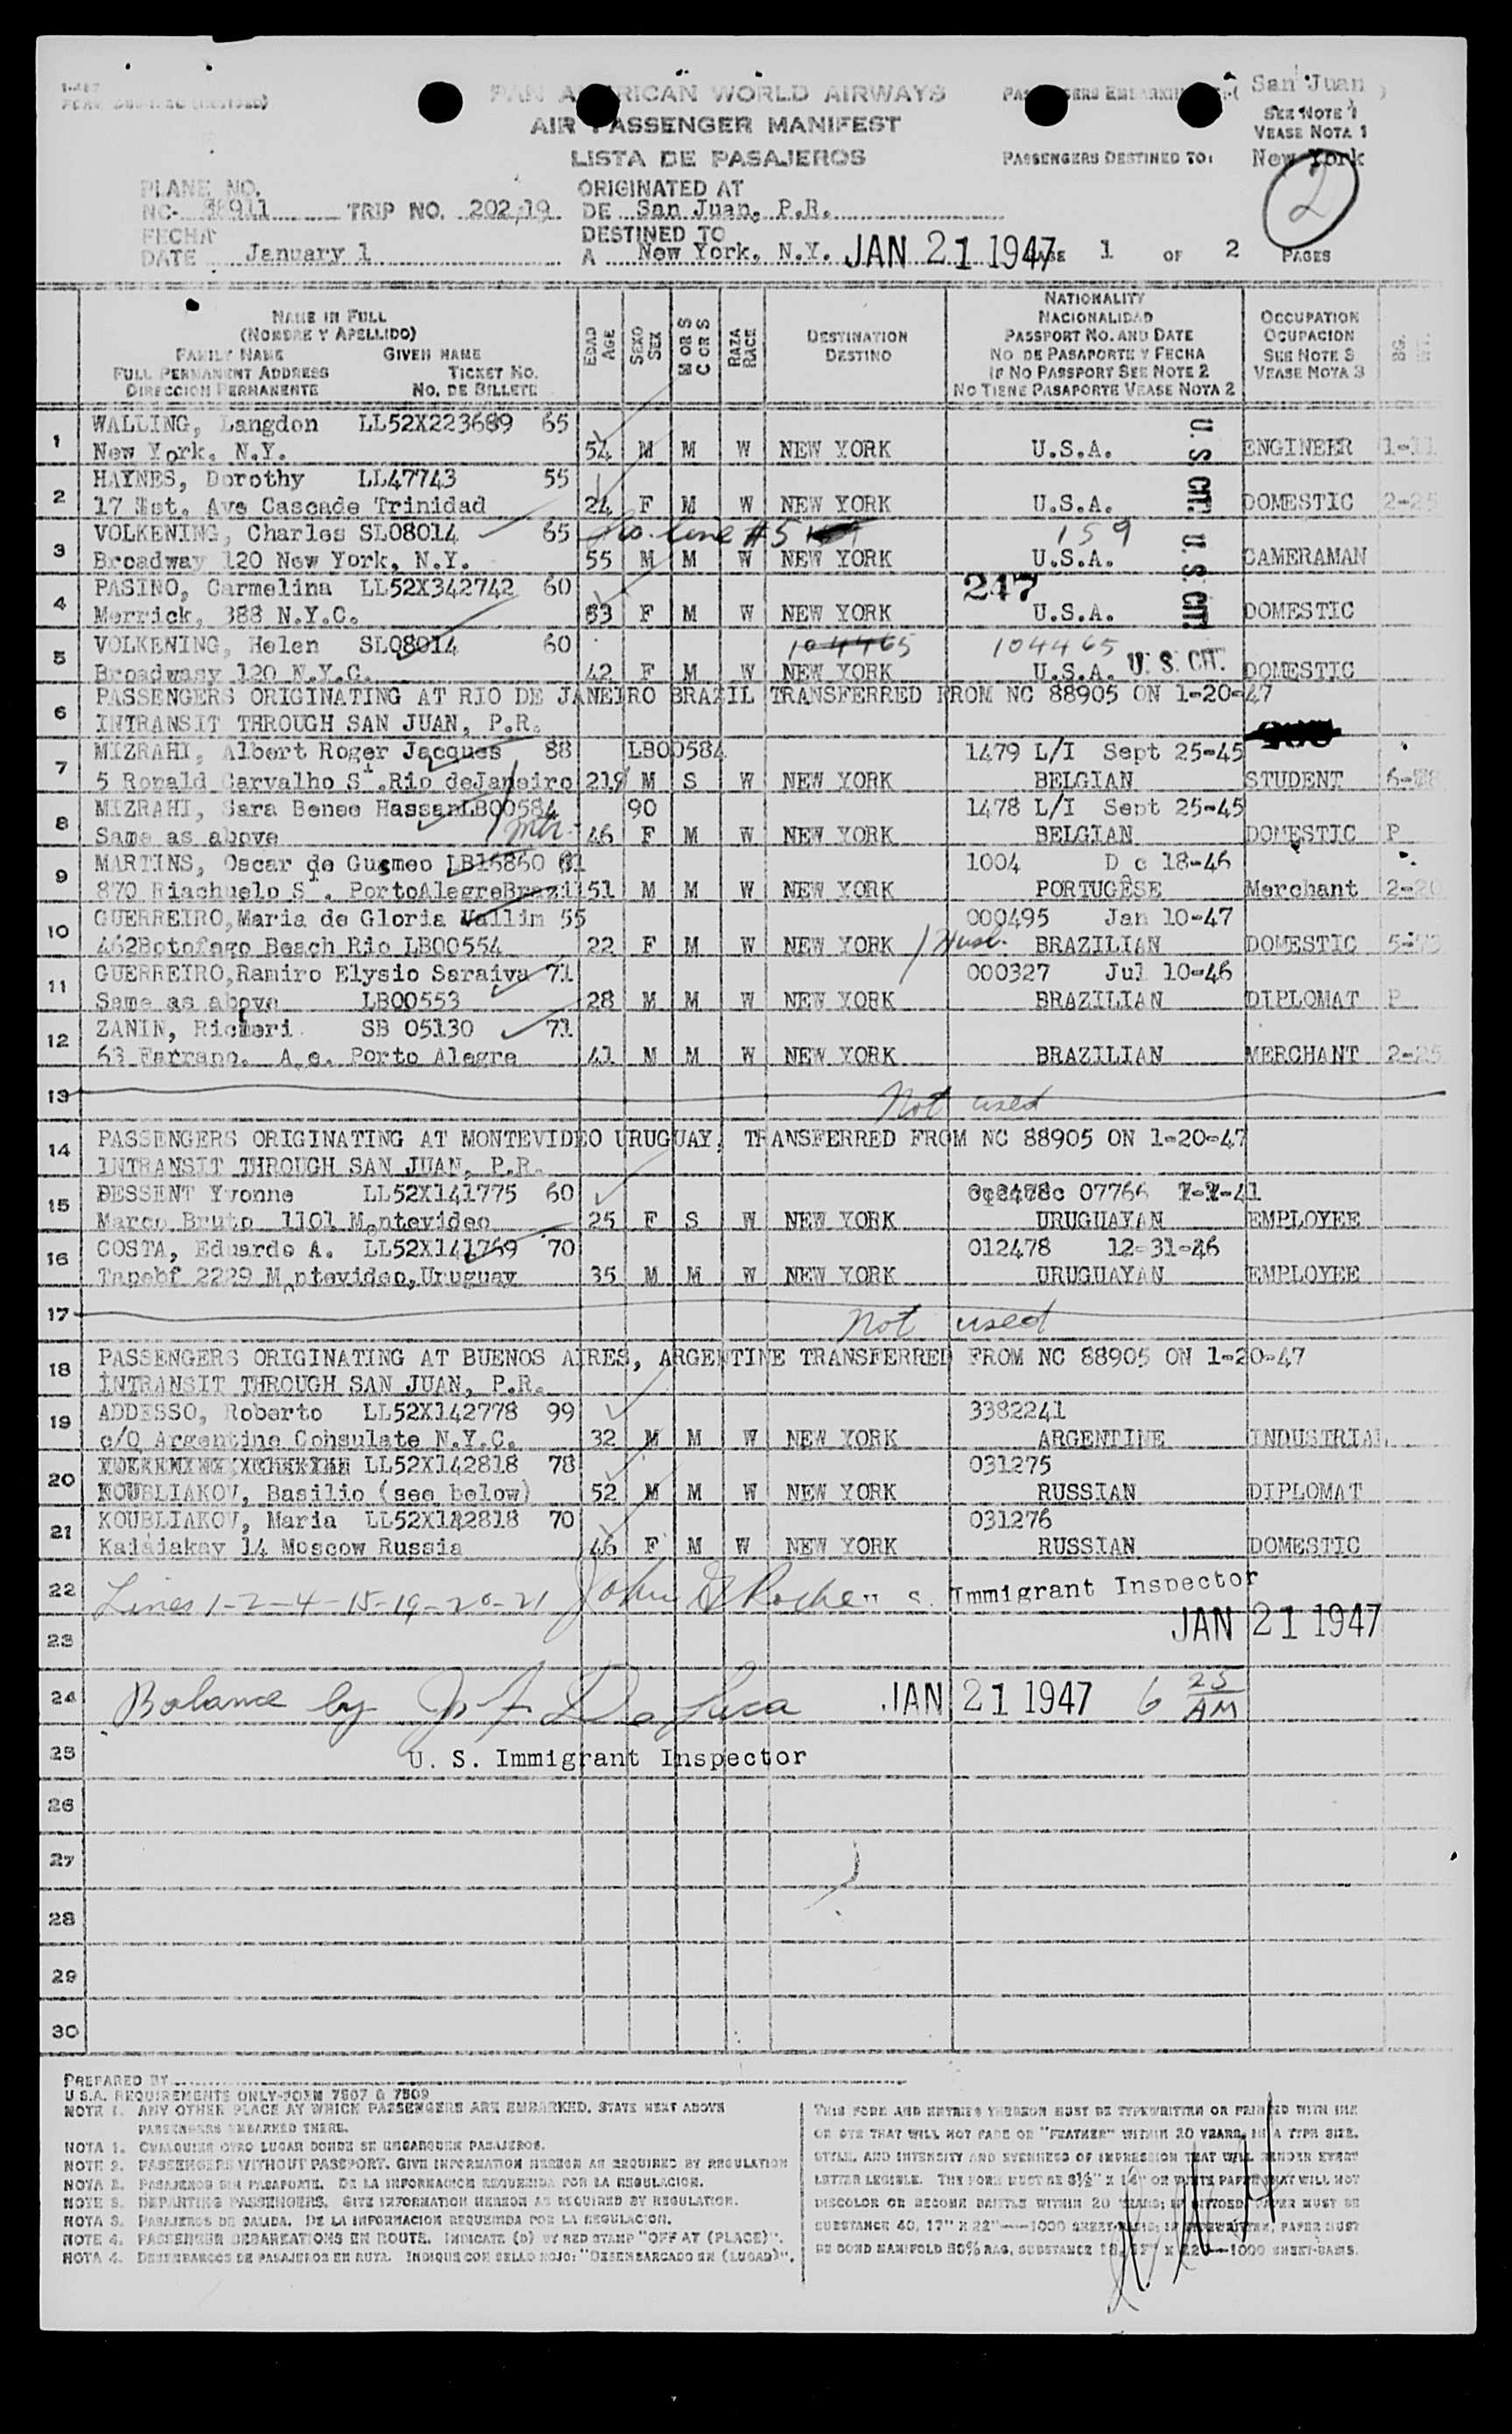 PAN AMERICAN WORLD AIRWAYS
AIR PASSENGER MANIFEST
LISTA DE PASAJEROS
San Juan
SEE NOTE 1
VEASE NOTA 1
PASSENGERS DESTINED TO: New York
2
PLANE NO.
NC- 88911 TRIP NO. 202,19
ORIGINATED AT
DE San Juan, P.R.
FECHA
DATE January 1
DESTINED TO
A New York, N.Y. JAN 21 1947 1 OF 2 PAGES
NAME IN FULL
(NOMBRE Y APELLIDO)
FAMILY NAME GIVEN NAME
FULL PERMANENT ADDRESS TICKET NO.
DIRECCION PERMANENTE NO. DE BILLETE
EDAD AGE
SEXO SEX
M OR S C OR S
RAZA RACE
DESTINATION
DESTINO
NATIONALITY
NACIONALIDAD
PASSPORT NO. AND DATE
NO. DE PASAPORTE Y FECHA
IF NO PASSPORT SEE NOTE 2
NO TIENE PASAPORTE VEASE NOTA 2
OCCUPATION
OCUPACION
SEE NOTE 3
VEASE NOTA 3
1 WALLING, Langdon LL52X223689 65
New York, N.Y. 54 M M W NEW YORK U.S.A. U. S. CIT. ENGINEER 1-11
2 HAYNES, Dorothy LL47743 55
17 Est. Ave Cascade Trinidad 24 F M W NEW YORK U.S.A. DOMESTIC 2-25
3 VOLKENING, Charles SL08014 65 line #5 159
Broadway 120 New York, N.Y. 55 M M W NEW YORK U.S.A. U. S. CIT. CAMERAMAN
4 PASINO, Carmelina LL52X342742 60 247
Merrick, 388 N.Y.C. 53 F M W NEW YORK U.S.A. DOMESTIC
5 VOLKENING, Helen SL08014 60 104465 104465
Broadwasy 120 N.Y.C. 42 F M W NEW YORK U.S.A. U. S. CIT. DOMESTIC
6 PASSENGERS ORIGINATING AT RIO DE JANEIRO BRAZIL TRANSFERRED FROM NC 88905 ON 1-20-47
INTRANSIT THROUGH SAN JUAN, P.R.
7 MIZRAHI, Albert Roger Jacques 88 LB00584 1479 L/I Sept 25-45
5 Ronald Carvalho St.Rio deJaneiro 21 M S W NEW YORK BELGIAN STUDENT
8 MIZRAHI, Sara Benee HassanLB00584 90 1478 L/I Sept 25-45
Same as above 46 F M W NEW YORK BELGIAN DOMESTIC P
9 MARTINS, Oscar de Gusmeo LB16860 81 1004 D c 18-46
870 Riachuelo St. PortoAlegreBrazil 51 M M W NEW YORK PORTUGESE Merchant 2-20
10 GUERREIRO,Maria de Gloria Vallim 55 000495 Jan 10-47
462Botofago Beach Rio LB00554 22 F M W NEW YORK Husb. BRAZILIAN DOMESTIC
11 GUERREIRO,Ramiro Elysio Saraiva 71 000327 Jul 10-46
Same as above LB00553 28 M M W NEW YORK BRAZILIAN DIPLOMAT P
12 ZANIN, Ricieri SB 05130 71
63 Farrapo. Ave. Porto Alegre 41 M M W NEW YORK BRAZILIAN MERCHANT 2-25
13 Not used
14 PASSENGERS ORIGINATING AT MONTEVIDEO URUGUAY, TRANSFERRED FROM NC 88905 ON 1-20-47
INTRANSIT THROUGH SAN JUAN, P.R.
15 DESSENT Yvonne LL52X141775 60 07766
Marco Bruto 1101 Montevideo 25 F S W NEW YORK URUGUAYAN EMPLOYEE
16 COSTA, Eduardo A. LL52X141769 70 012478 12-31-46
2229 Montevideo,Uruguay 35 M M W NEW YORK URUGUAYAN EMPLOYEE
17 Not used
18 PASSENGERS ORIGINATING AT BUENOS AIRES, ARGENTINE TRANSFERRED FROM NC 88905 ON 1-20-47
INTRANSIT THROUGH SAN JUAN, P.R.
19 ADDESSO, Roberto LL52X142778 99 3382241
c/O Argentine Cohsulate N.Y.C. 32 M M W NEW YORK ARGENTINE INDUSTRIAL
20 LL52X142818 78 031275
KOUBLIAKOV, Basilio (see below) 52 M M W NEW YORK RUSSIAN DIPLOMAT
21 KOUBLIAKOV, Maria LL52X142818 70 031276
Kalaiakay 14 Moscow Russia 46 F M W NEW YORK RUSSIAN DOMESTIC
22 Lines 1-2-4-15-19-20-21 John Roche U. S. Immigrant Inspector
23 JAN 21 1947
24 Balance by J. F. DeLuca JAN 21 1947 6 25 AM
25 U. S. Immigrant Inspector
26
27
28
29
30
PREPARED BY
U.S.A. REQUIREMENTS ONLY-FORM 7507 & 7509
NOTE 1. ANY OTHER PLACE AT WHICH PASSENGERS ARE EMBARKED, STATE NEXT ABOVE
PASSENGERS EMBARKED THERE.
NOTA 1. CUALQUIER OTRO LUGAR DONDE SE EMBARQUEN PASAJEROS.
NOTE 2. PASSENGERS WITHOUT PASSPORT. GIVE INFORMATION HEREON AS REQUIRED BY REGULATION
NOTA 2. PASAJEROS SIN PASAPORTE. DE LA INFORMACION REQUERIDA POR LA REGULACION.
NOTE 3. DEPARTING PASSENGERS. GIVE INFORMATION HEREON AS REQUIRED BY REGULATION.
NOTA 3. PASAJEROS DE SALIDA. DE LA INFORMACION REQUERIDA POR LA REGULACION.
NOTE 4. PASSENGER DEBARKATIONS EN ROUTE. INDICATE (D) BY RED STAMP "OFF AT (PLACE)".
NOTA 4. DESEMBARCOS DE PASAJEROS EN RUTA. INDIQUE CON SELLO ROJO: "DESEMBARCADO EN (LUGAR)".
THIS FORM AND ENTRIES THEREON MUST BE TYPEWRITTEN OR PRINTED WITH INK
OR DYE THAT WILL NOT FADE OR "FEATHER" WITHIN 20 YEARS, IN A TYPE SIZE,
STYLE, AND INTENSITY AND EVENNESS OF IMPRESSION THAT WILL RENDER EVERY
LETTER LEGIBLE. THE FORM MUST BE 8½" X 14" ON WHITE PAPER THAT WILL NOT
DISCOLOR OR BECOME BRITTLE WITHIN 20 YEARS; IF DITTOED, PAPER MUST BE
SUBSTANCE 40, 17" X 22"—1000 SHEET-BASIS; IF TYPEWRITTEN, PAPER MUST
BE BOND MANIFOLD 50% RAG, SUBSTANCE 18, 17" X 22—1000 SHEET-BASIS.